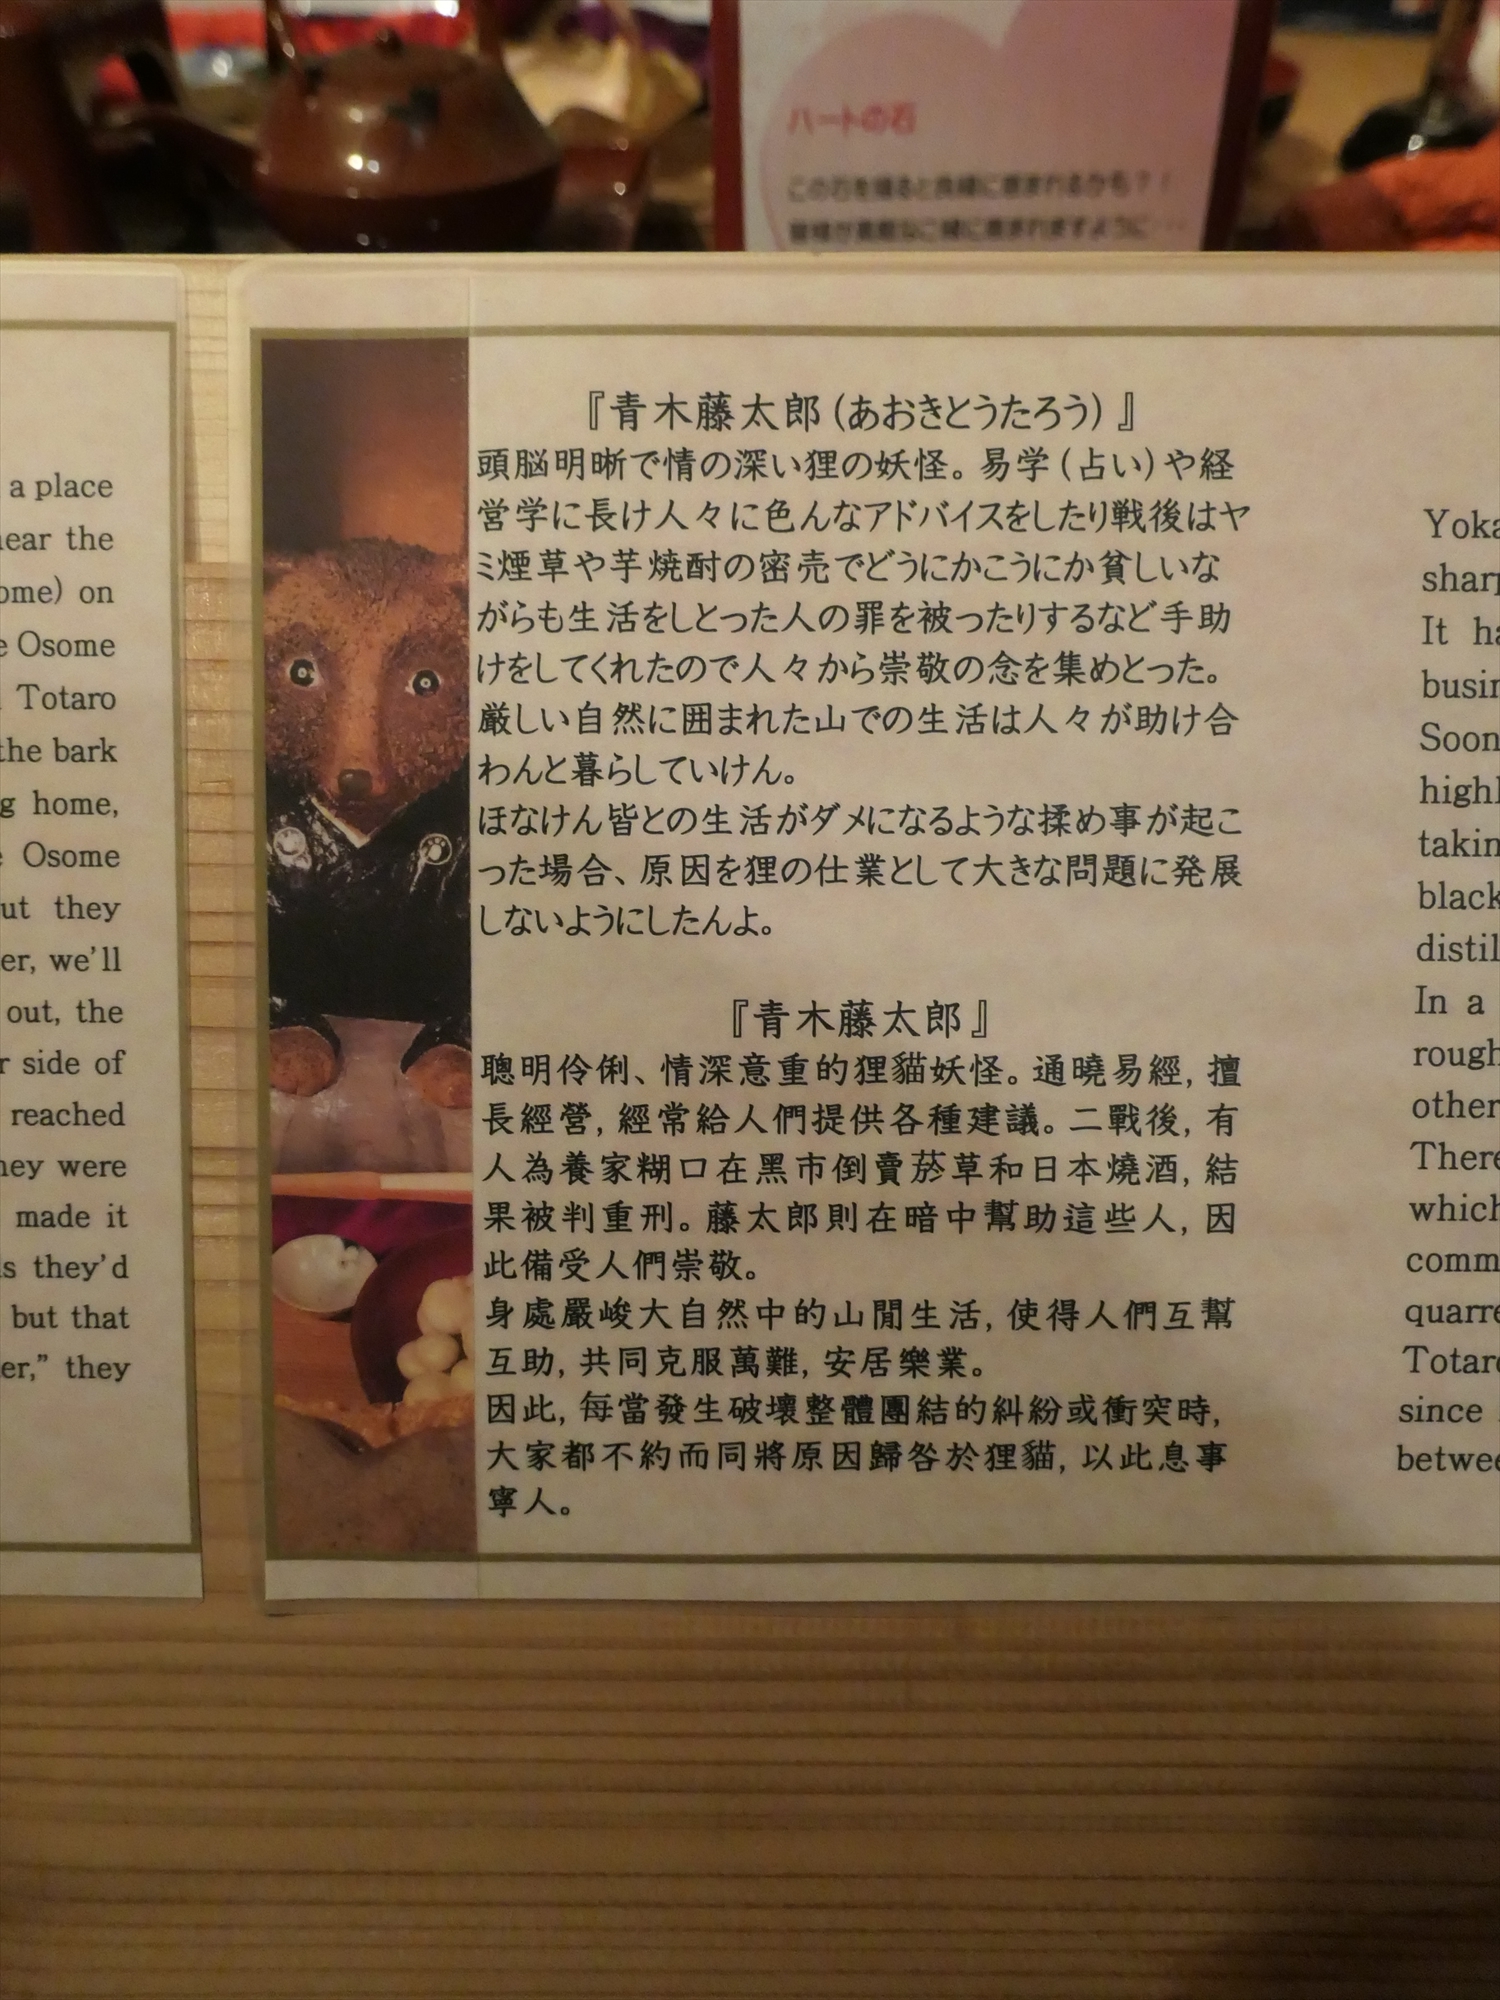 ハートの石
この石を撮ると良縁に恵まれるかも？！
皆様が素敵なご縁に恵まれますように・・・
a place
near the
ome) on
e Osome
Totaro
the bark
g home,
e Osome
ut they
er, we'll
out, the
r side of
reached
hey were
made it
s they'd
but that
er,” they
『青木藤太郎(あおきとうたろう)』
頭脳明晰で情の深い狸の妖怪。易学(占い)や経
営学に長け人々に色んなアドバイスをしたり戦後はヤ
ミ煙草や芋焼酎の密売でどうにかこうにか貧しいな
がらも生活をしとった人の罪を被ったりするなど手助
けをしてくれたので人々から崇敬の念を集めとった。
厳しい自然に囲まれた山での生活は人々が助け合
わんと暮らしていけん。
ほなけん皆との生活がダメになるような揉め事が起こ
った場合、原因を狸の仕業として大きな問題に発展
しないようにしたんよ。
『青木藤太郎』
聰明伶俐、情深意重的狸貓妖怪。通曉易經,擅
長經營,經常給人們提供各種建議。二戰後,有
人為養家糊口在黑市倒賣菸草和日本燒酒,結
果被判重刑。藤太郎則在暗中幫助這些人,因
此備受人們崇敬。
身處嚴峻大自然中的山間生活,使得人們互幫
互助,共同克服萬難,安居樂業。
因此,每當發生破壞整體團結的糾紛或衝突時,
大家都不約而同將原因歸咎於狸貓,以此息事
寧人。
Yoka
sharp
It ha
busin
Soon
highl
takin
black
distil
In a
rough
other
There
which
comm
quarre
Totaro
since
betwee